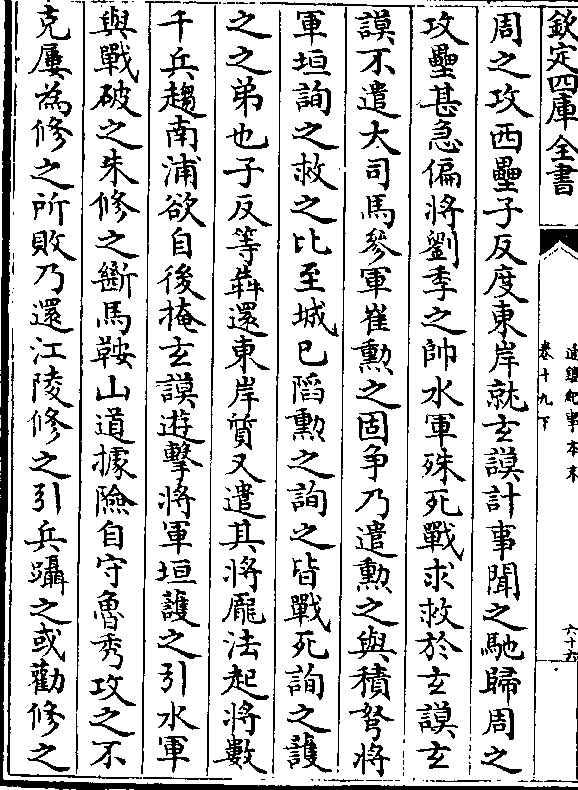 欽定四庫全書
通鑑紀事本末
卷十九下
六十六
周之攻西壘子反度東岸就玄謨計事聞之馳歸周之
攻壘甚急偏將劉季之帥水軍殊死戰求救於玄謨玄
謨不遣大司馬參軍崔勲之固爭乃遣勲之與積弩將
軍垣詢之救之比至城已陷勲之詢之皆戰死詢之護
之之弟也子反等犇還東岸質又遣其將龎法起將數
千兵趨南浦欲自後掩玄謨遊擊將軍垣護之引水軍
與戰破之朱修之斷馬鞍山道據險自守魯秀攻之不
克屢為修之所敗乃還江陵修之引兵躡之或勸修之